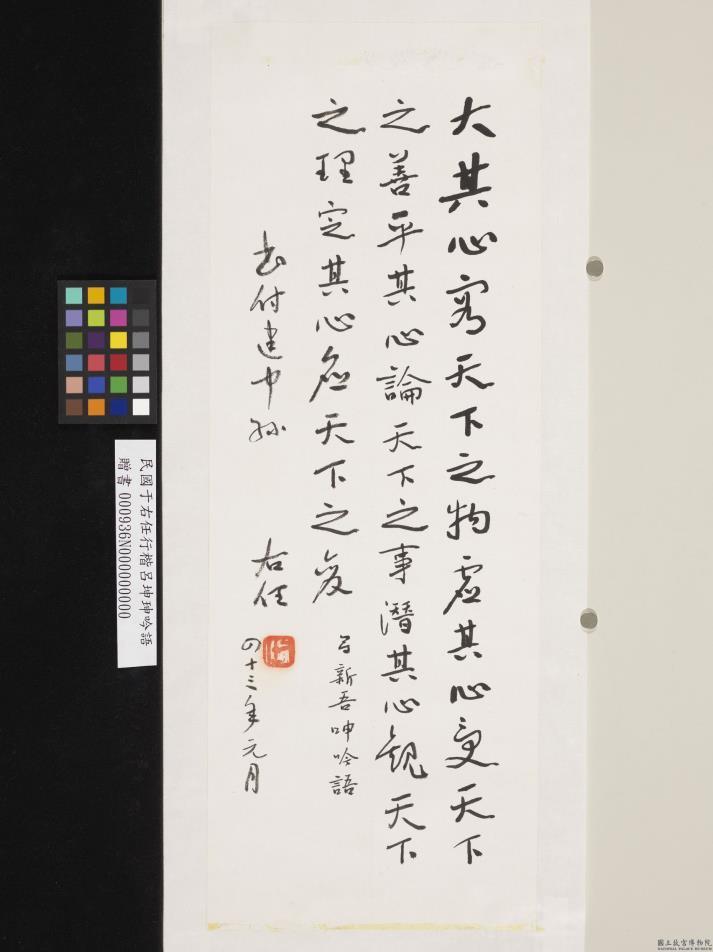 大其心容天下之物虛其心受天下
之善平其心論天下之事潛其心觀天下
之理定其心應天下之變
呂新吾呻吟語
書付建中孫
右任
四十三年元月
民國于右任行楷呂坤珅吟語
贈書 000936N000000000
國立故宮博物院
NATIONAL PALACE MUSEUM